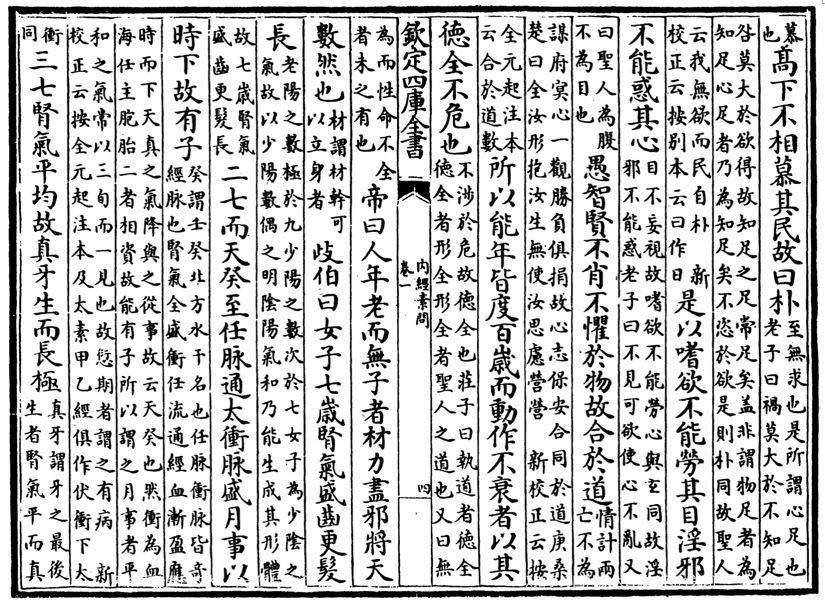 慕
也
髙下不相慕其民故曰朴
至無求也是所謂心足也
老子曰禍莫大於不知足
咎莫大於欲得故知足之足常足矣盖非謂物足者為
知足心足者乃為知足矣不恣於欲是則朴同故聖人
云我無欲而民自朴 新
校正云按别本云曰作日
是以嗜欲不能勞其目淫邪
不能惑其心
目不妄視故嗜欲不能勞心與玄同故淫
邪不能惑老子曰不見可欲使心不亂又
曰聖人為腹
不為目也
愚智賢不肖不懼於物故合於道
情計兩
亡不為
謀府㝠心一觀勝負俱捐故心志保安合同於道庚桑
楚曰全汝形抱汝生無使汝思慮營營 新校正云按
全元起注本
云合於道數
所以能年皆度百嵗而動作不衰者以其
德全不危也
不涉於危故德全也莊子曰執道者德全
德全者形全形全者聖人之道也又曰無
欽定四庫全書
內經素問
卷一
四
為而性命不全
者未之有也
帝曰人年老而無子者材力盡邪將天
數然也
材謂材幹可
以立身者
歧伯曰女子七嵗腎氣盛齒更髮
長
老陽之數極於九少陽之數次於七女子為少隂之
氣故以少陽數偶之明隂陽氣和乃能生成其形體
故七嵗腎氣
盛齒更髮長
二七而天癸至任脉通太衝脉盛月事以
時下故有子
癸謂壬癸北方水干名也任脉衝脉皆奇
經脉也腎氣全盛衝任流通經血漸盈應
時而下天真之氣降與之從事故云天癸也然衝為血
海任主胞胎二者相資故能有子所以謂之月事者平
和之氣常以三旬而一見也故愆期者謂之有病 新
校正云按全元起注本及太素甲乙經俱作伏衝下太
衝
同
三七腎氣平均故真牙生而長極
真牙謂牙之最後
生者腎氣平而真